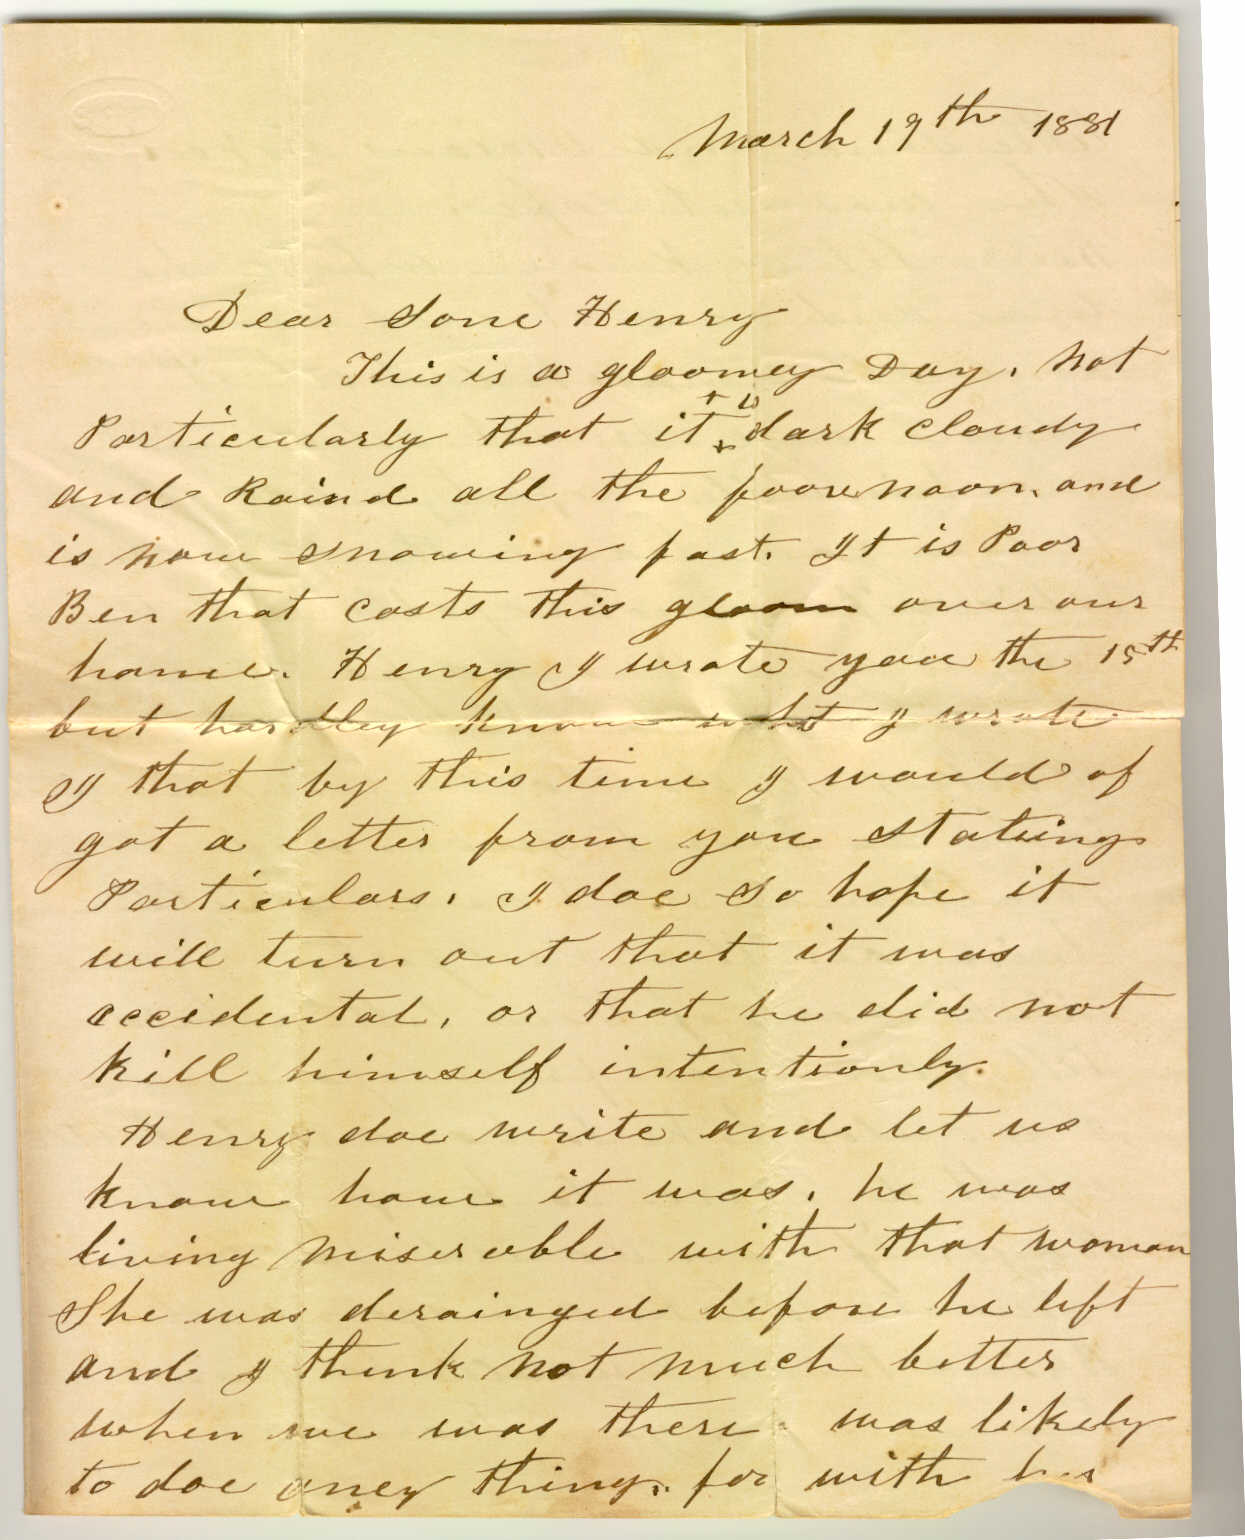 March 19th 1881
Dear Sone Henry
This is a gloomey Day. Not
Particularly that it is dark cloudy
and Raind all the foorenoon. and
is now snowing fast. It is Poor
Ben that casts this gloom over our
home. Henry I wrote you the 15th
but hardley know what I wrote
I that by this time I would of
got a letter from you stateing
Particulars. I doe so hope it
will turn out that it was
accidental, or that he did not
kill himself intentionly.
Henry doe write and let us
know how it was. he was
living miserable with that woman
She was derainged before he left
and I think not much better
when we was there was likely
to doe aney thing. for with her